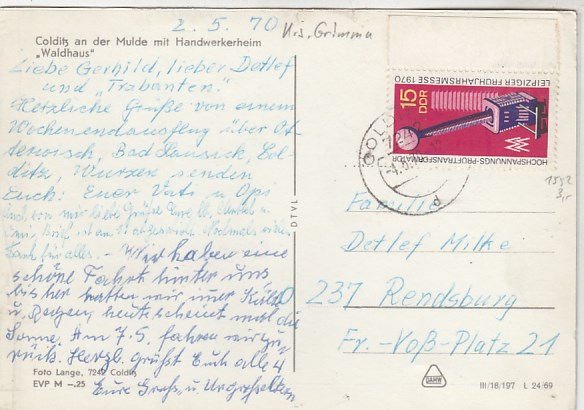 2. 5. 70
Krs. Grimma
Colditz an der Mulde mit Handwerkerheim
„Waldhaus"
Liebe Gerhild, lieber Detlef
und „Trabanten".
Herzliche Grüße von einem
Wochenendausflug über Ot-
terwisch, Bad Lausick, Col-
ditz, Wurzen senden
Euch: Euer Vati u. Opi
und von mir liebe Grüße Eure
Dank für alles. -
Wir haben eine
schöne Fahrt hinter uns
bisher hatten wir nur Kälte
u. Regen, heute scheint mal die
Sonne. Am 7.5. fahren wir zu-
rück. Herzl. grüßt Euch alle 4
Eure Groß- u.
Foto Lange, 7242 Colditz
EVP M –.25
DTVL
15 DDR
LEIPZIGER FRÜHJAHRSMESSE 1970
HOCHSPANNUNGS-PRÜFTRANSFORMATOR
COLD
d
Familie
Detlef Milke
237 Rendsburg
Fr.-Voß-Platz 21
III/18/197 L 24/69